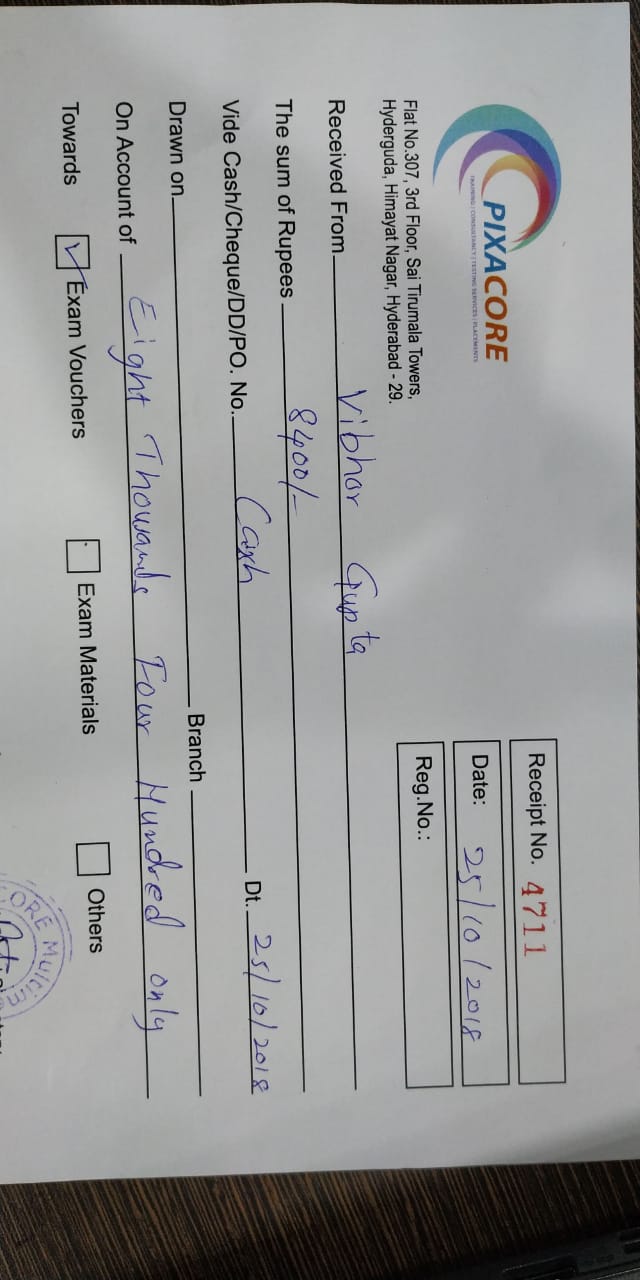 PIXACORE
TRAINING | CONSULTANCY | TESTING SERVICES | PLACEMENTS
Flat No.307, 3rd Floor, Sai Tirumala Towers,
Hyderguda, Himayat Nagar, Hyderabad - 29.
Receipt No. 4711
Date: 25/10/2018
Reg.No.:
Received From Vibhor Gupta
The sum of Rupees 8400/-
Vide Cash/Cheque/DD/PO. No. Cash Dt. 25/10/2018
Drawn on Branch
On Account of Eight Thowands Four Hundred only
Towards Exam Vouchers Exam Materials Others
ORE